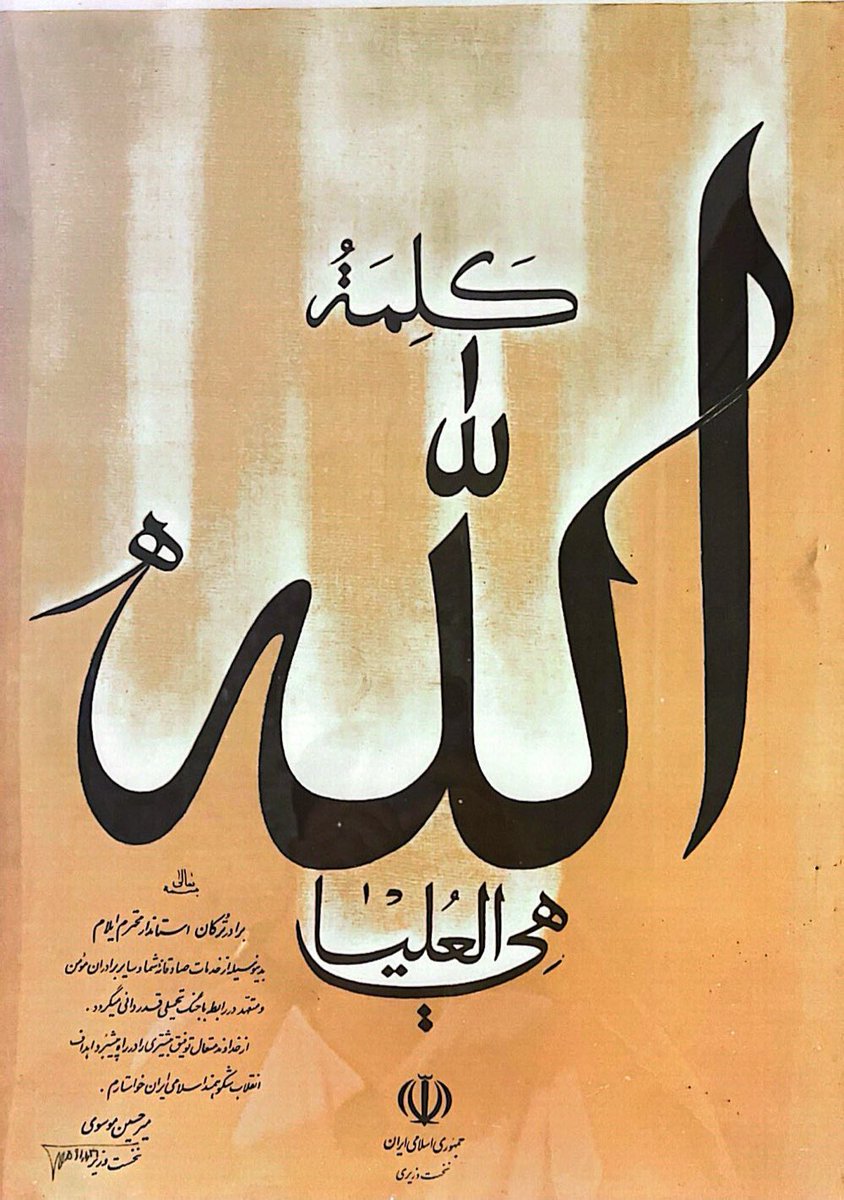 كَلِمَةُ
اللّٰه
هِيَ العُلْيا
بسمه تعالی
برادر ترکان استاندار محترم ایلام
بدینوسیله از خدمات صادقانه شما و سایر برادران مؤمن
و متعهد در رابطه با جنگ تحمیلی قدردانی میگردد.
از خداوند متعال توفیق بیشتری را در راه پیشبرد اهداف
انقلاب شکوهمند اسلامی ایران خواستارم.
میرحسین موسوی
نخست وزیر
جمهوری اسلامی ایران
نخست وزیری